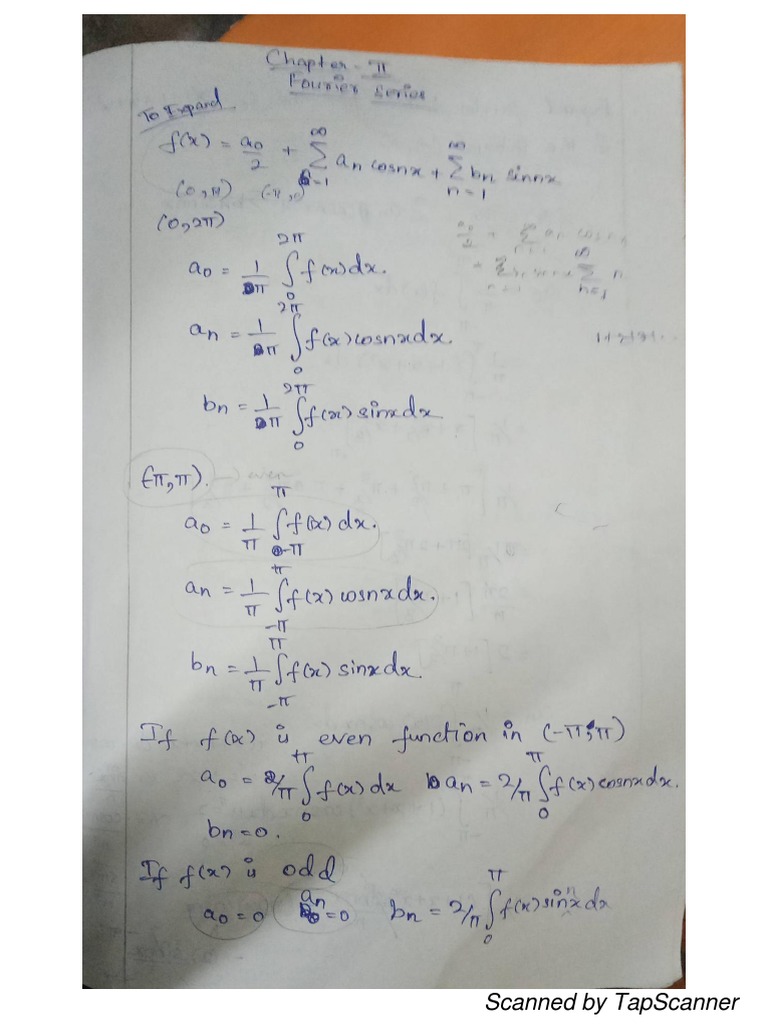 Chapter - II
Fourier Series
To Expand
f(x) = a0/2 + ∞ ∑ n=1 an cosnx + ∞ ∑ n=1 bn sinnx
(0, π) (-π, 0)
(0, 2π)
a0 = 1/π 2π ∫ 0 f(x)dx.
an = 1/π 2π ∫ 0 f(x)cosnxdx.
bn = 1/π 2π ∫ 0 f(x)sinxdx
(-π, π). even
a0 = 1/π π ∫ -π f(x) dx.
an = 1/π π ∫ -π f(x) cosnxdx.
bn = 1/π π ∫ -π f(x) sinxdx.
If f(x) is even function in (-π, π)
a0 = 2/π π ∫ 0 f(x) dx an = 2/π π ∫ 0 f(x) cosnxdx.
bn = 0.
If f(x) is odd
a0 = 0 an = 0 bn = 2/π π ∫ 0 f(x) sinnx dx
Scanned by TapScanner